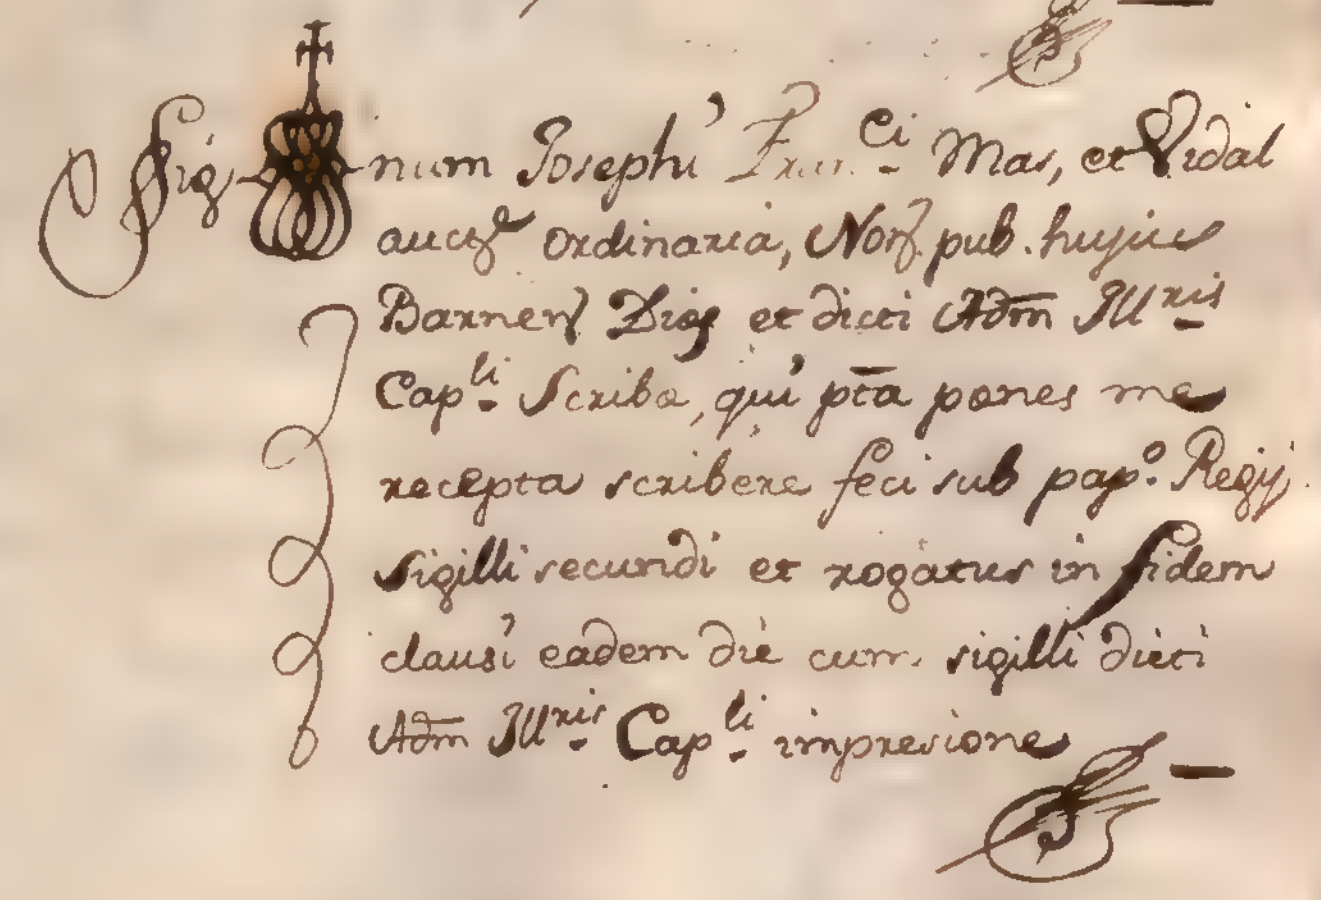 Signum Josephi Fran.ci Mas, et Vidal
auctᵉ ordinaria, Nor. pub. hujus
Barnen Dios et dicti Adm Illris
Capli Scriba, qui pta pones me
recepta scribere feci sub papº. Regij
sigilli secundi et rogatus in fidem
clausi eadem die cum sigilli dicti
Adm Illris Capli impresione